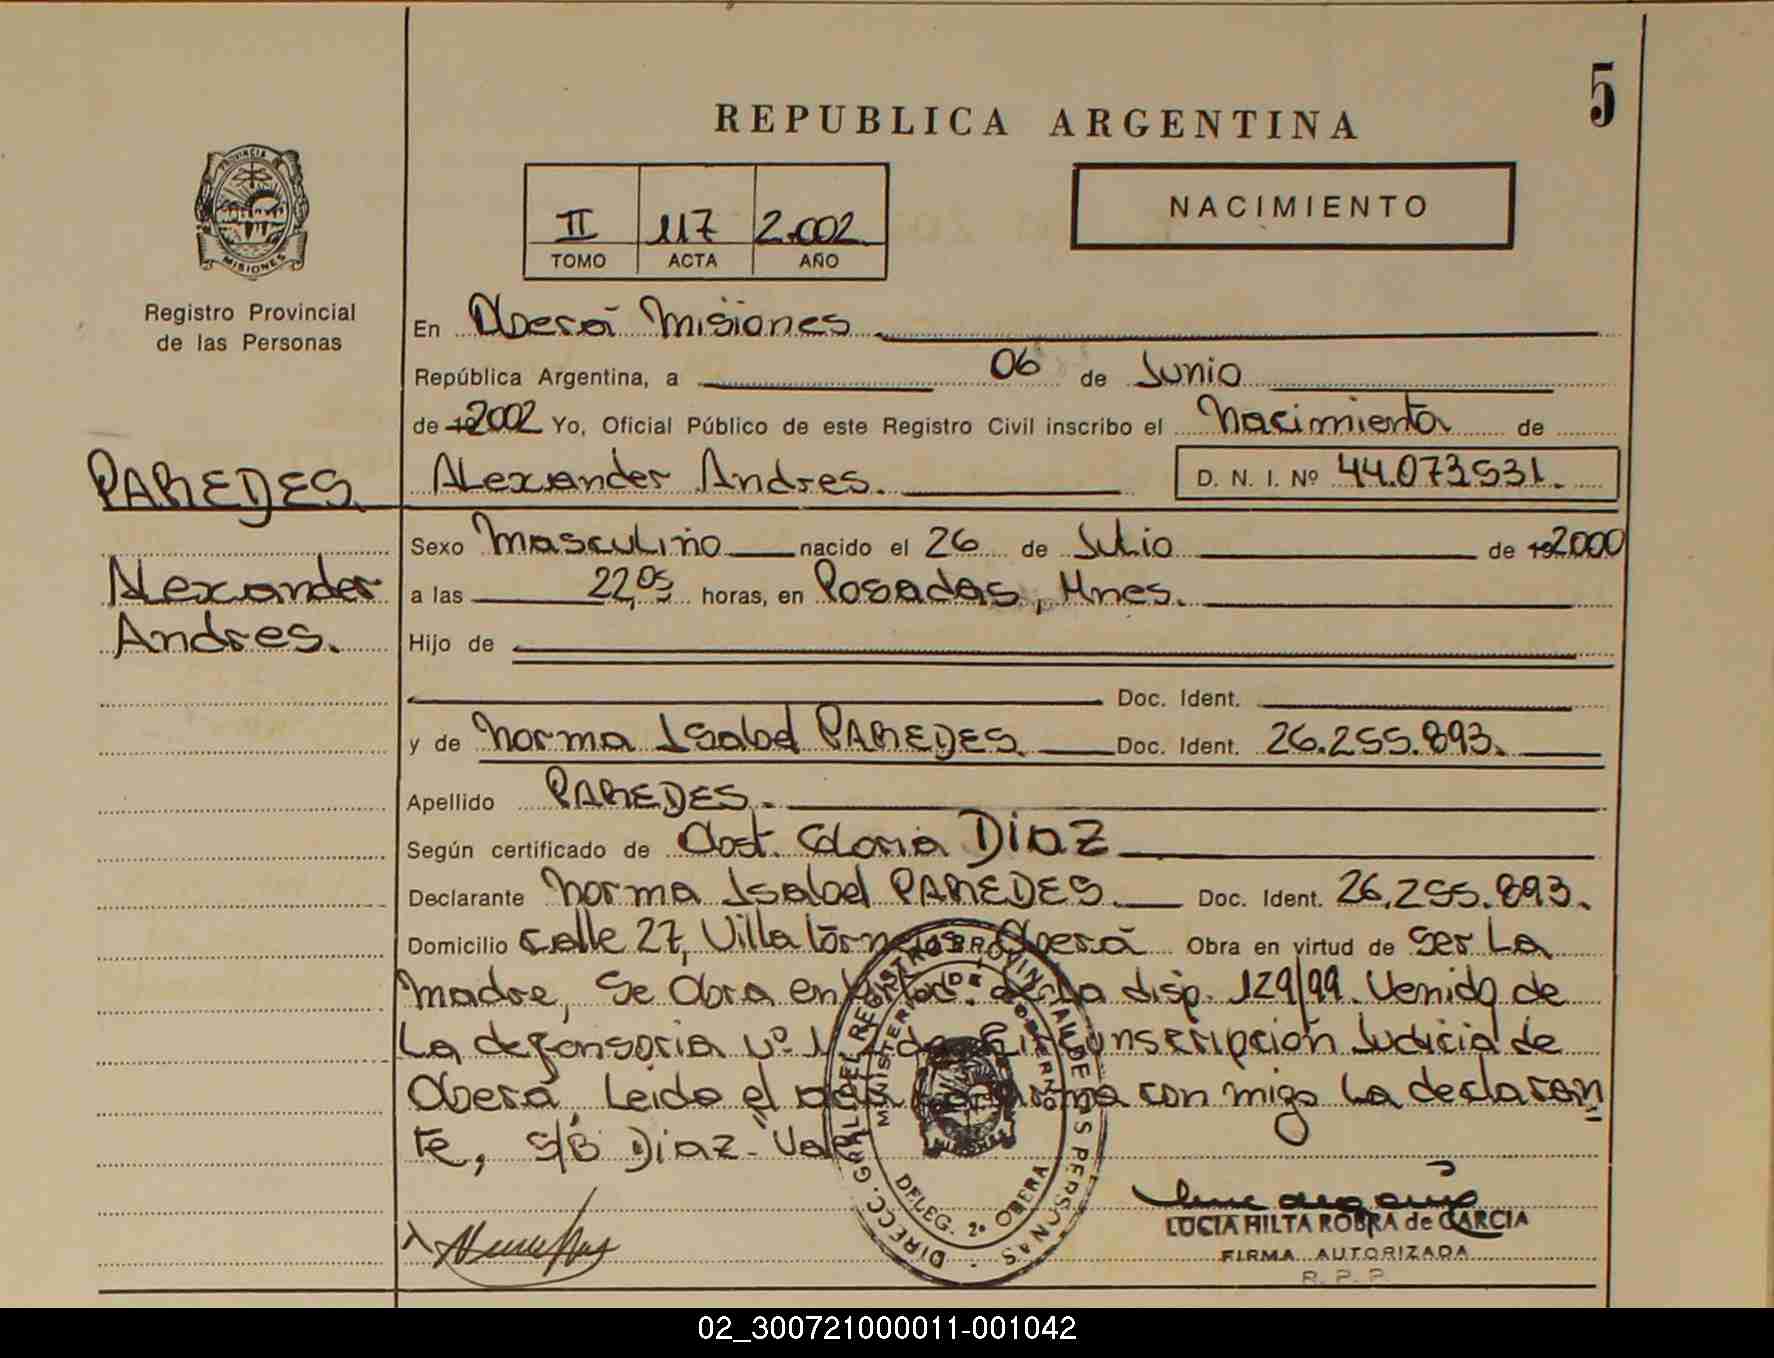 5
REPUBLICA ARGENTINA
PROVINCIA DE
MISIONES
Registro Provincial
de las Personas
II 117 2.002
TOMO ACTA AÑO
NACIMIENTO
En Oberá Misiones
República Argentina, a 06 de Junio
de 19 2002 Yo, Oficial Público de este Registro Civil inscribo el Nacimiento de
PAREDES Alexander Andres. D. N. I. Nº 44.073.531.
Sexo Masculino nacido el 26 de Julio de 19 2000
Alexander
Andres.
a las 22,05 horas, en Posadas, Mnes.
Hijo de
Doc. Ident.
y de Norma Isabel PAREDES Doc. Ident. 26.255.893.
Apellido PAREDES.
Según certificado de Obst. Gloria DiaZ
Declarante Norma Isabel PAREDES Doc. Ident. 26.255.893.
Domicilio Calle 27, Villa Oberá Obra en virtud de Ser La
Madre, Se Obra en virtud de la disp. 129/99. Venido de
La defensoria Nº 1 de Circunscripción Judicia de
Oberá, Leido el acta La firma con migo La declaran=
te, S/B Diaz- Vale
DIRECC. GRAL. DEL REGISTRO PROVINCIAL DE LAS PERSONAS
MINISTERIO DE GOBIERNO
DELEG. 2ª OBERA
LUCIA HILTA ROBRA de GARCIA
FIRMA AUTORIZADA
R. P. P.
02_300721000011-001042